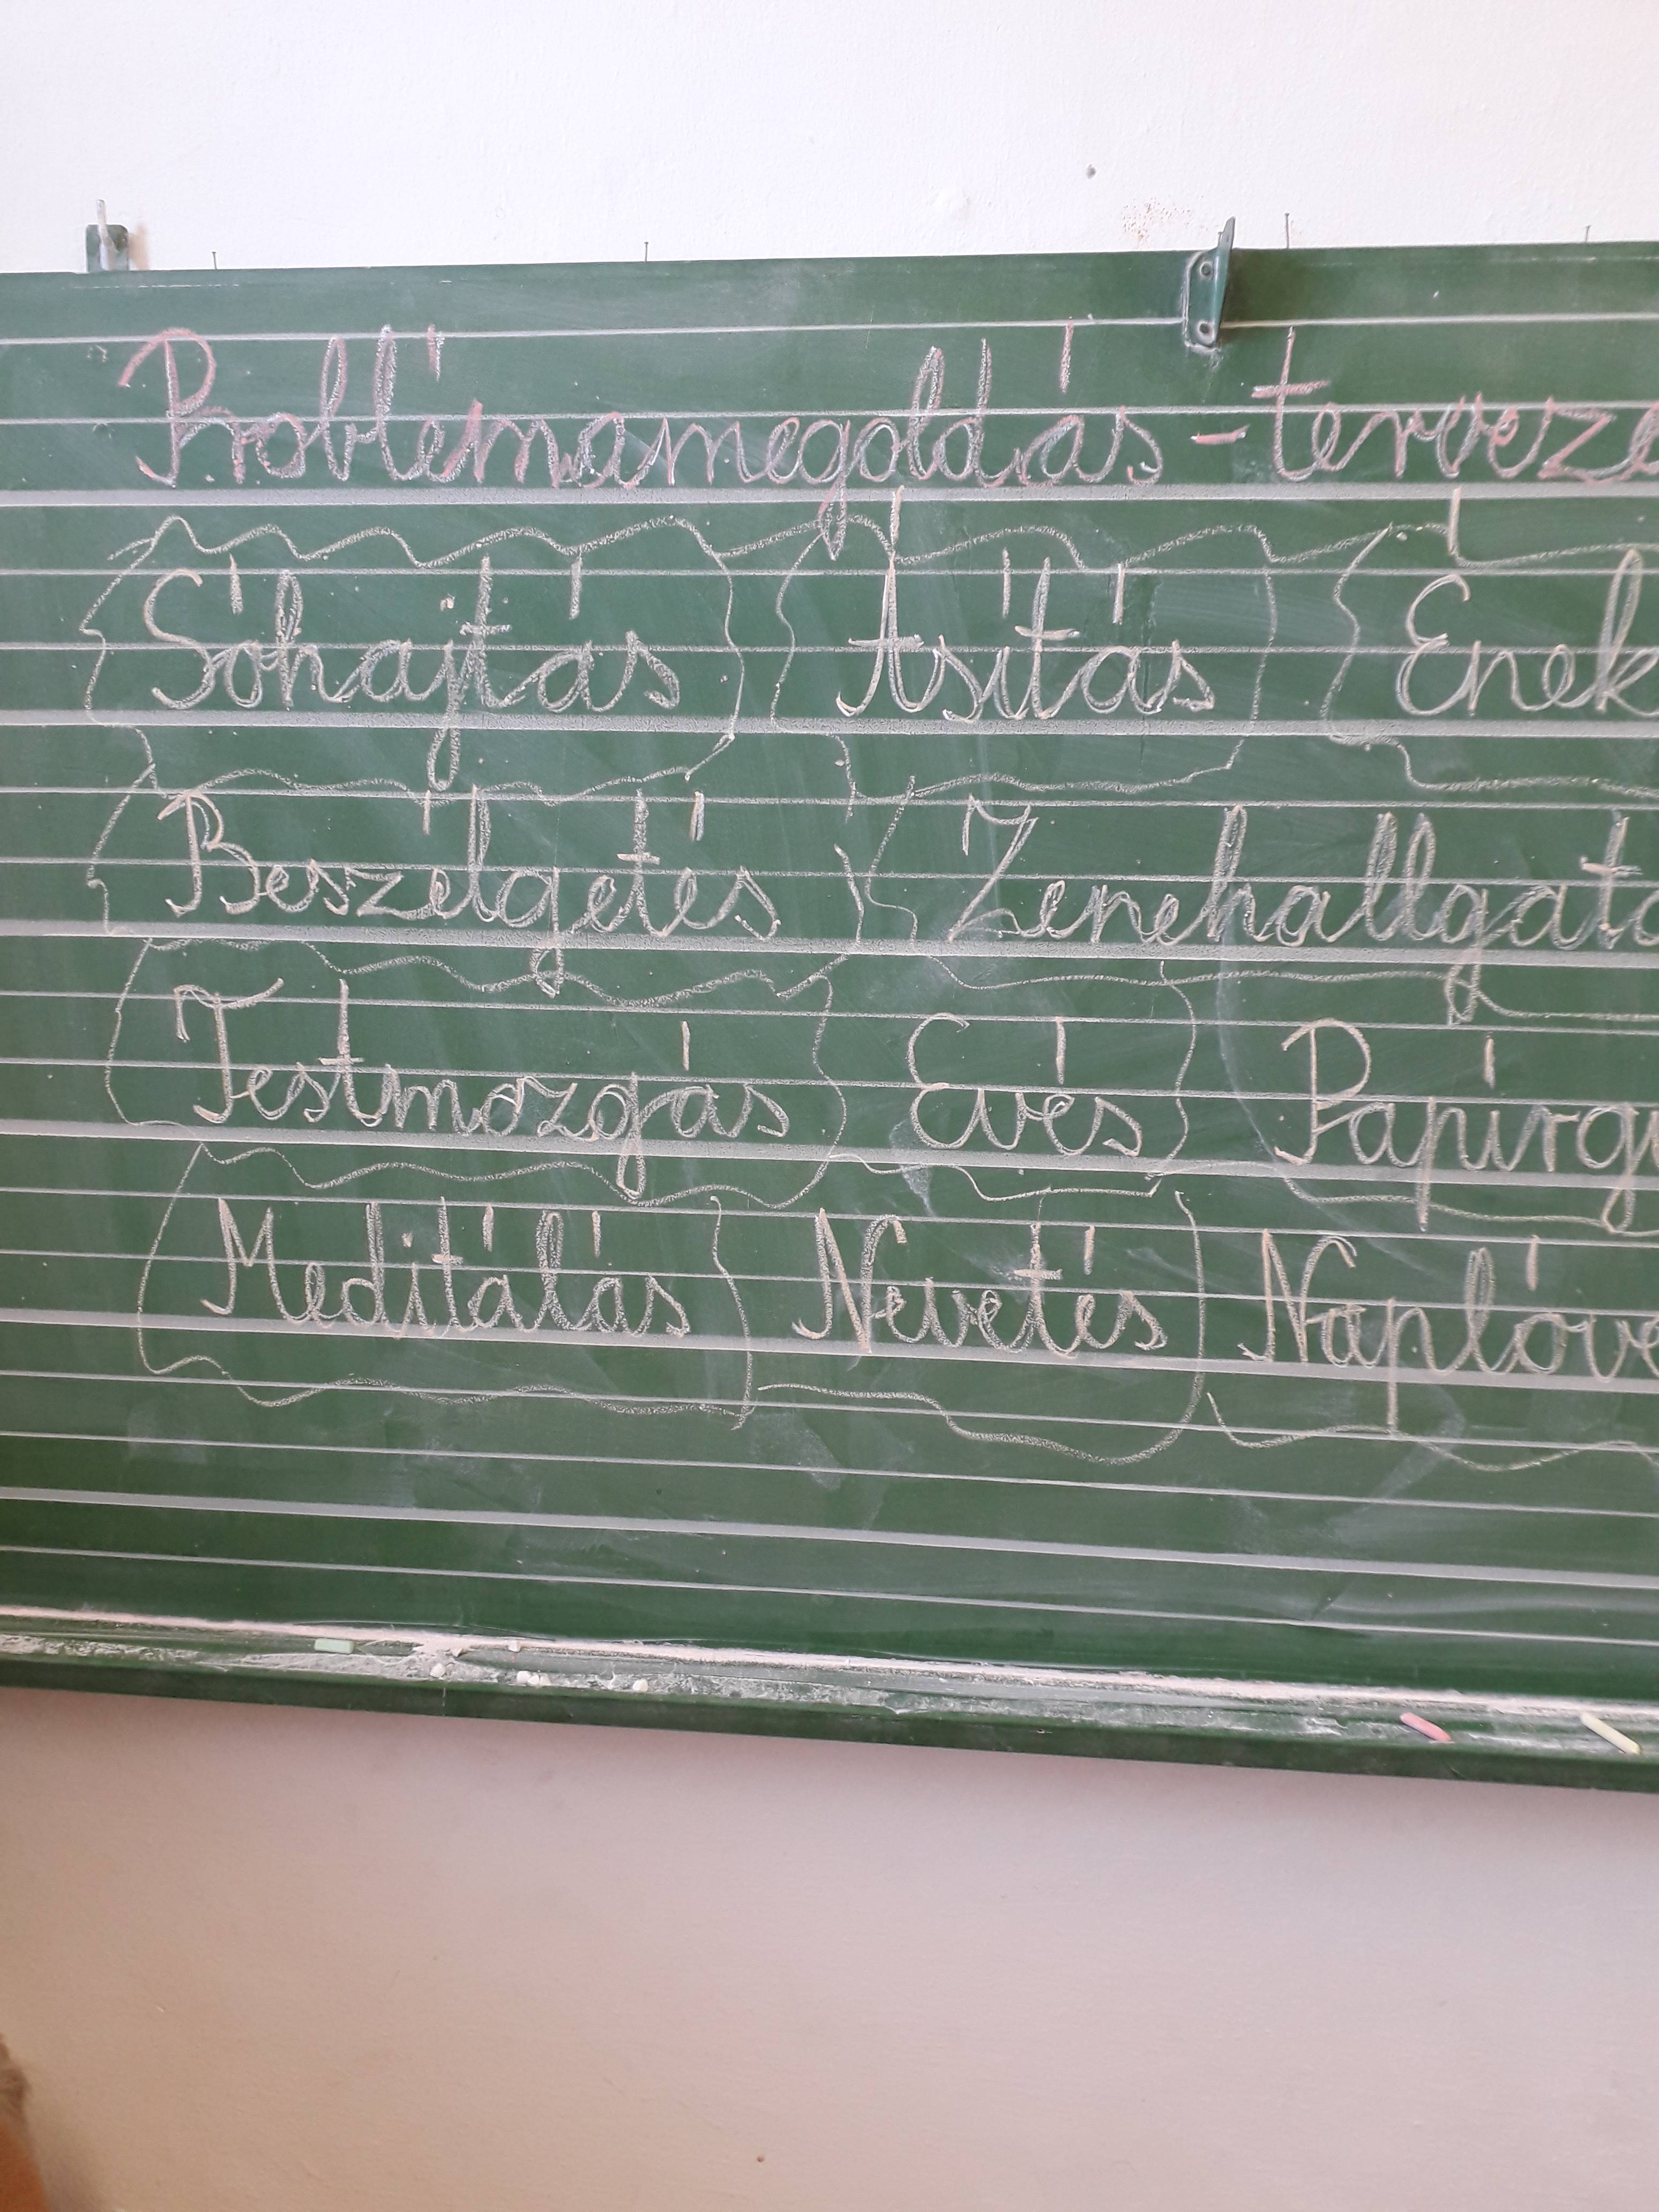 Problémamegoldás - terveze
Sóhajtás Ásítás Ének
Beszélgetés Zenehallgatá
Testmozgás Evés Papírgy
Meditálás Nevetés Naplóve